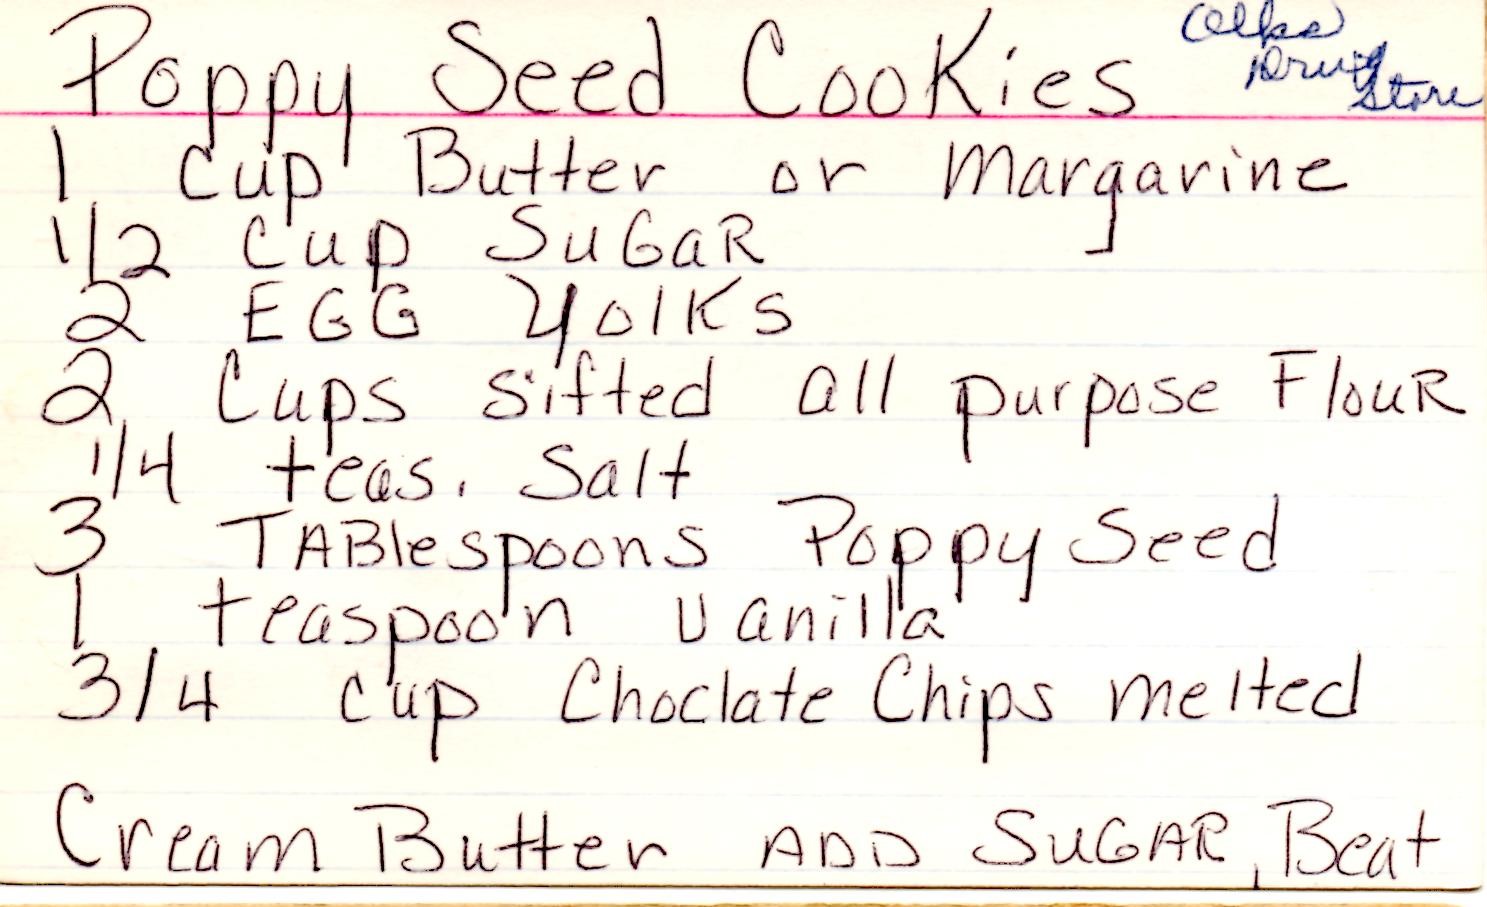 Poppy Seed Cookies
Drug
Store
1 Cup Butter or Margarine
1/2 Cup SuGaR
2 EGG Yolks
2 Cups sifted all purpose FlouR
1/4 teas. Salt
3 TABlespoons Poppy Seed
1 teaspoon Vanilla
3/4 cup Choclate Chips melted
Cream Butter ADD SUGAR, Beat